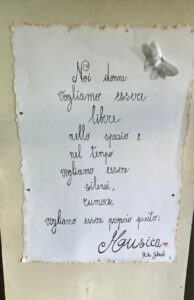 Noi donne
vogliamo essere
libere
nello spazio e
nel tempo
vogliamo essere
silenzi,
rumore,
vogliamo essere proprio questo:
Musica